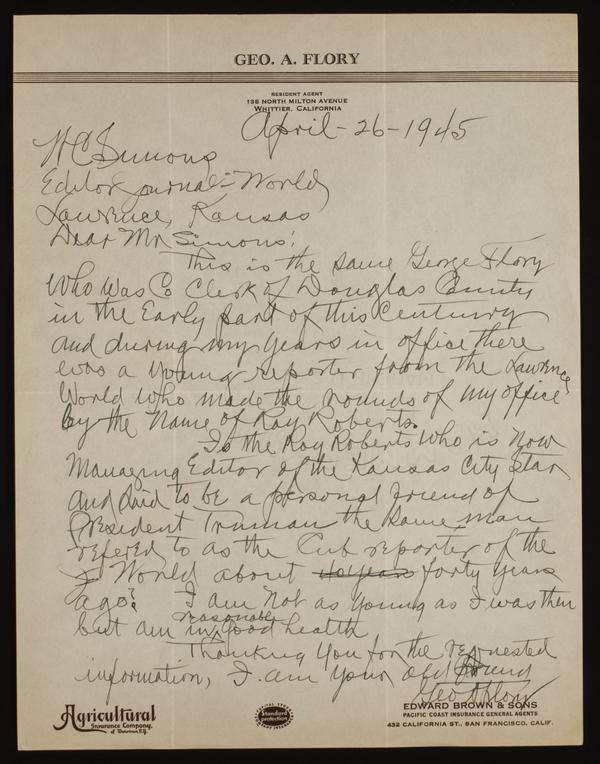 GEO. A. FLORY
RESIDENT AGENT
138 NORTH MILTON AVENUE
WHITTIER, CALIFORNIA
April-26-1945
W C Simons
Editor Journal-World
Lawrence, Kansas
Dear Mr Simons:
This is the same George Flory
who was Co Clerk of Douglas County
in the Early part of this Century
and during my years in office there
was a young reporter from the Lawrence
World who made the rounds of my office
by the name of Roy Roberts.
Is the Roy Roberts who is now
Managing Editor of the Kansas City Star
and said to be a personal friend of
President Truman the same man
refered to as the Cub reporter of the
World about 40 years forty years
ago? I am not as young as I was then
but am in reasonably good health
Thanking you for the requested
information, I am your old friend
Geo A Flory
Agricultural
Insurance Company,
of Watertown N.Y.
Standard
protection
EDWARD BROWN & SONS
PACIFIC COAST INSURANCE GENERAL AGENTS
432 CALIFORNIA ST., SAN FRANCISCO, CALIF.